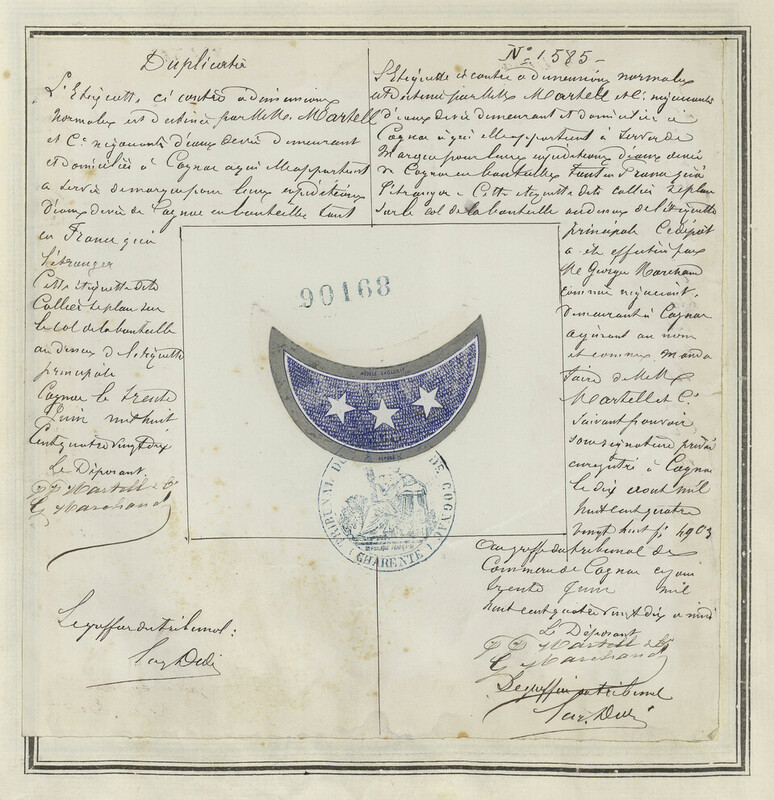 Duplicata
L'Etiquette, ci contre à dimensions
normales est destinée par MM. Martell
et Cie négociants d'eaux de vie demeurant
et domiciliés à Cognac à qui elle appartient
à servir de marque pour leurs expéditions
d'eaux de vie de Cognac en bouteilles tant
en France qu'à
l'étranger
Cette étiquette dite
Collier se place sur
le col de la bouteille
au dessus de l'étiquette
principale
Cognac le trente
Juin mil huit
Cent quatre vingt dix
Le Déposant,
PP Martell & Co
G Marchand
Le greffier du tribunal:
N° 1585 -
L'Etiquette ci contre à dimensions normales
est destinée par MM. Martell et Cie négociants
d'eaux de vie demeurant et domiciliés à
Cognac à qui elle appartient à servir de
Marque pour leurs expéditions d'eaux de vie
de Cognac en bouteilles tant en France qu'à
l'étranger - Cette étiquette dite collier se place
sur le col de la bouteille au dessus de l'étiquette
principale Ce dépôt
a été effectué par
Mr George Marchand
commis négociant,
demeurant à Cognac
agissant au nom
et comme manda
taire de MM.
Martell et Cie
Suivant pouvoir
sous signature privée
enregistré à Cognac
le dix août mil
huit cent quatre
vingt huit fo 49 Co 3
Au greffe du tribunal de
Commerce de Cognac ce jour
trente Juin mil
huit cent quatre vingt dix à midi
Le Déposant
PP Martell & Co
G Marchand
Le greffier du tribunal
90168
MODÈLE EXCLUSIF
DÉPOSÉ
TRIBUNAL DE COGNAC
RÉPUBLIQUE FRANÇAISE
(CHARENTE)